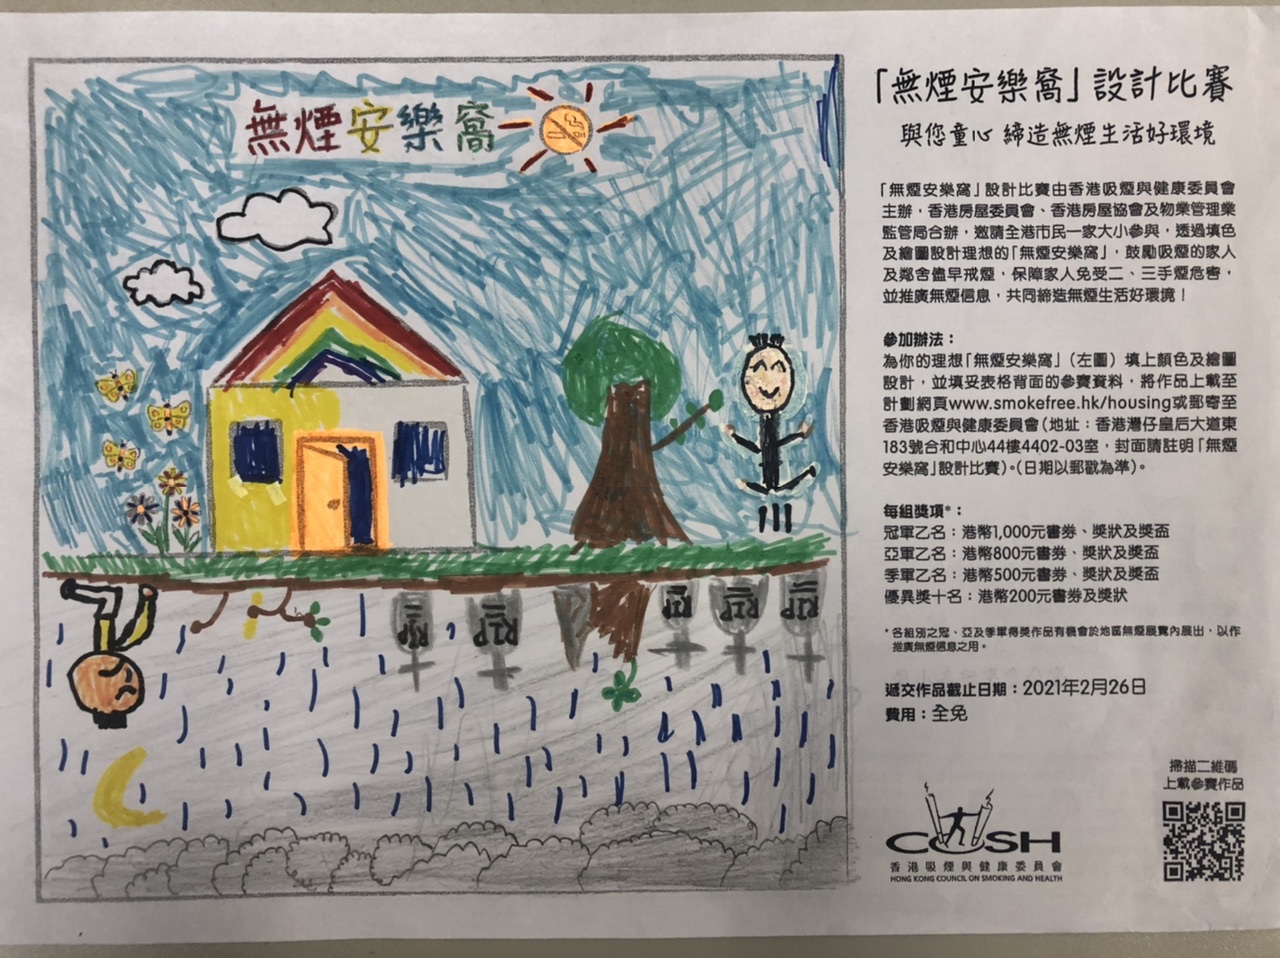 無煙安樂窩
RIP
RIP
RIP
RIP
RIP
「無煙安樂窩」設計比賽
與您童心 締造無煙生活好環境
「無煙安樂窩」設計比賽由香港吸煙與健康委員會
主辦，香港房屋委員會、香港房屋協會及物業管理業
監管局合辦，邀請全港市民一家大小參與，透過填色
及繪圖設計理想的「無煙安樂窩」，鼓勵吸煙的家人
及鄰舍儘早戒煙，保障家人免受二、三手煙危害，
並推廣無煙信息，共同締造無煙生活好環境！
參加辦法：
為你的理想「無煙安樂窩」（左圖）填上顏色及繪圖
設計，並填妥表格背面的參賽資料，將作品上載至
計劃網頁www.smokefree.hk/housing或郵寄至
香港吸煙與健康委員會（地址：香港灣仔皇后大道東
183號合和中心44樓4402-03室，封面請註明「無煙
安樂窩」設計比賽）。（日期以郵戳為準）。
每組獎項*：
冠軍乙名：港幣1,000元書券、獎狀及獎盃
亞軍乙名：港幣800元書券、獎狀及獎盃
季軍乙名：港幣500元書券、獎狀及獎盃
優異獎十名：港幣200元書券及獎狀
*各組別之冠、亞及季軍得獎作品有機會於地區無煙展覽內展出，以作
推廣無煙信息之用。
遞交作品截止日期：2021年2月26日
費用：全免
掃描二維碼
上載參賽作品
COSH
香港吸煙與健康委員會
HONG KONG COUNCIL ON SMOKING AND HEALTH